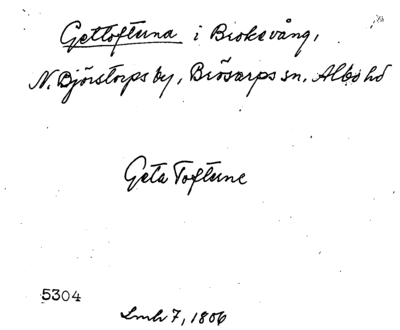 Gettoftuna i Brokavång,
N. Björstorps by, Brösarps sn, Albo hd
Geta Toftene
5304
Lmh 7, 1806